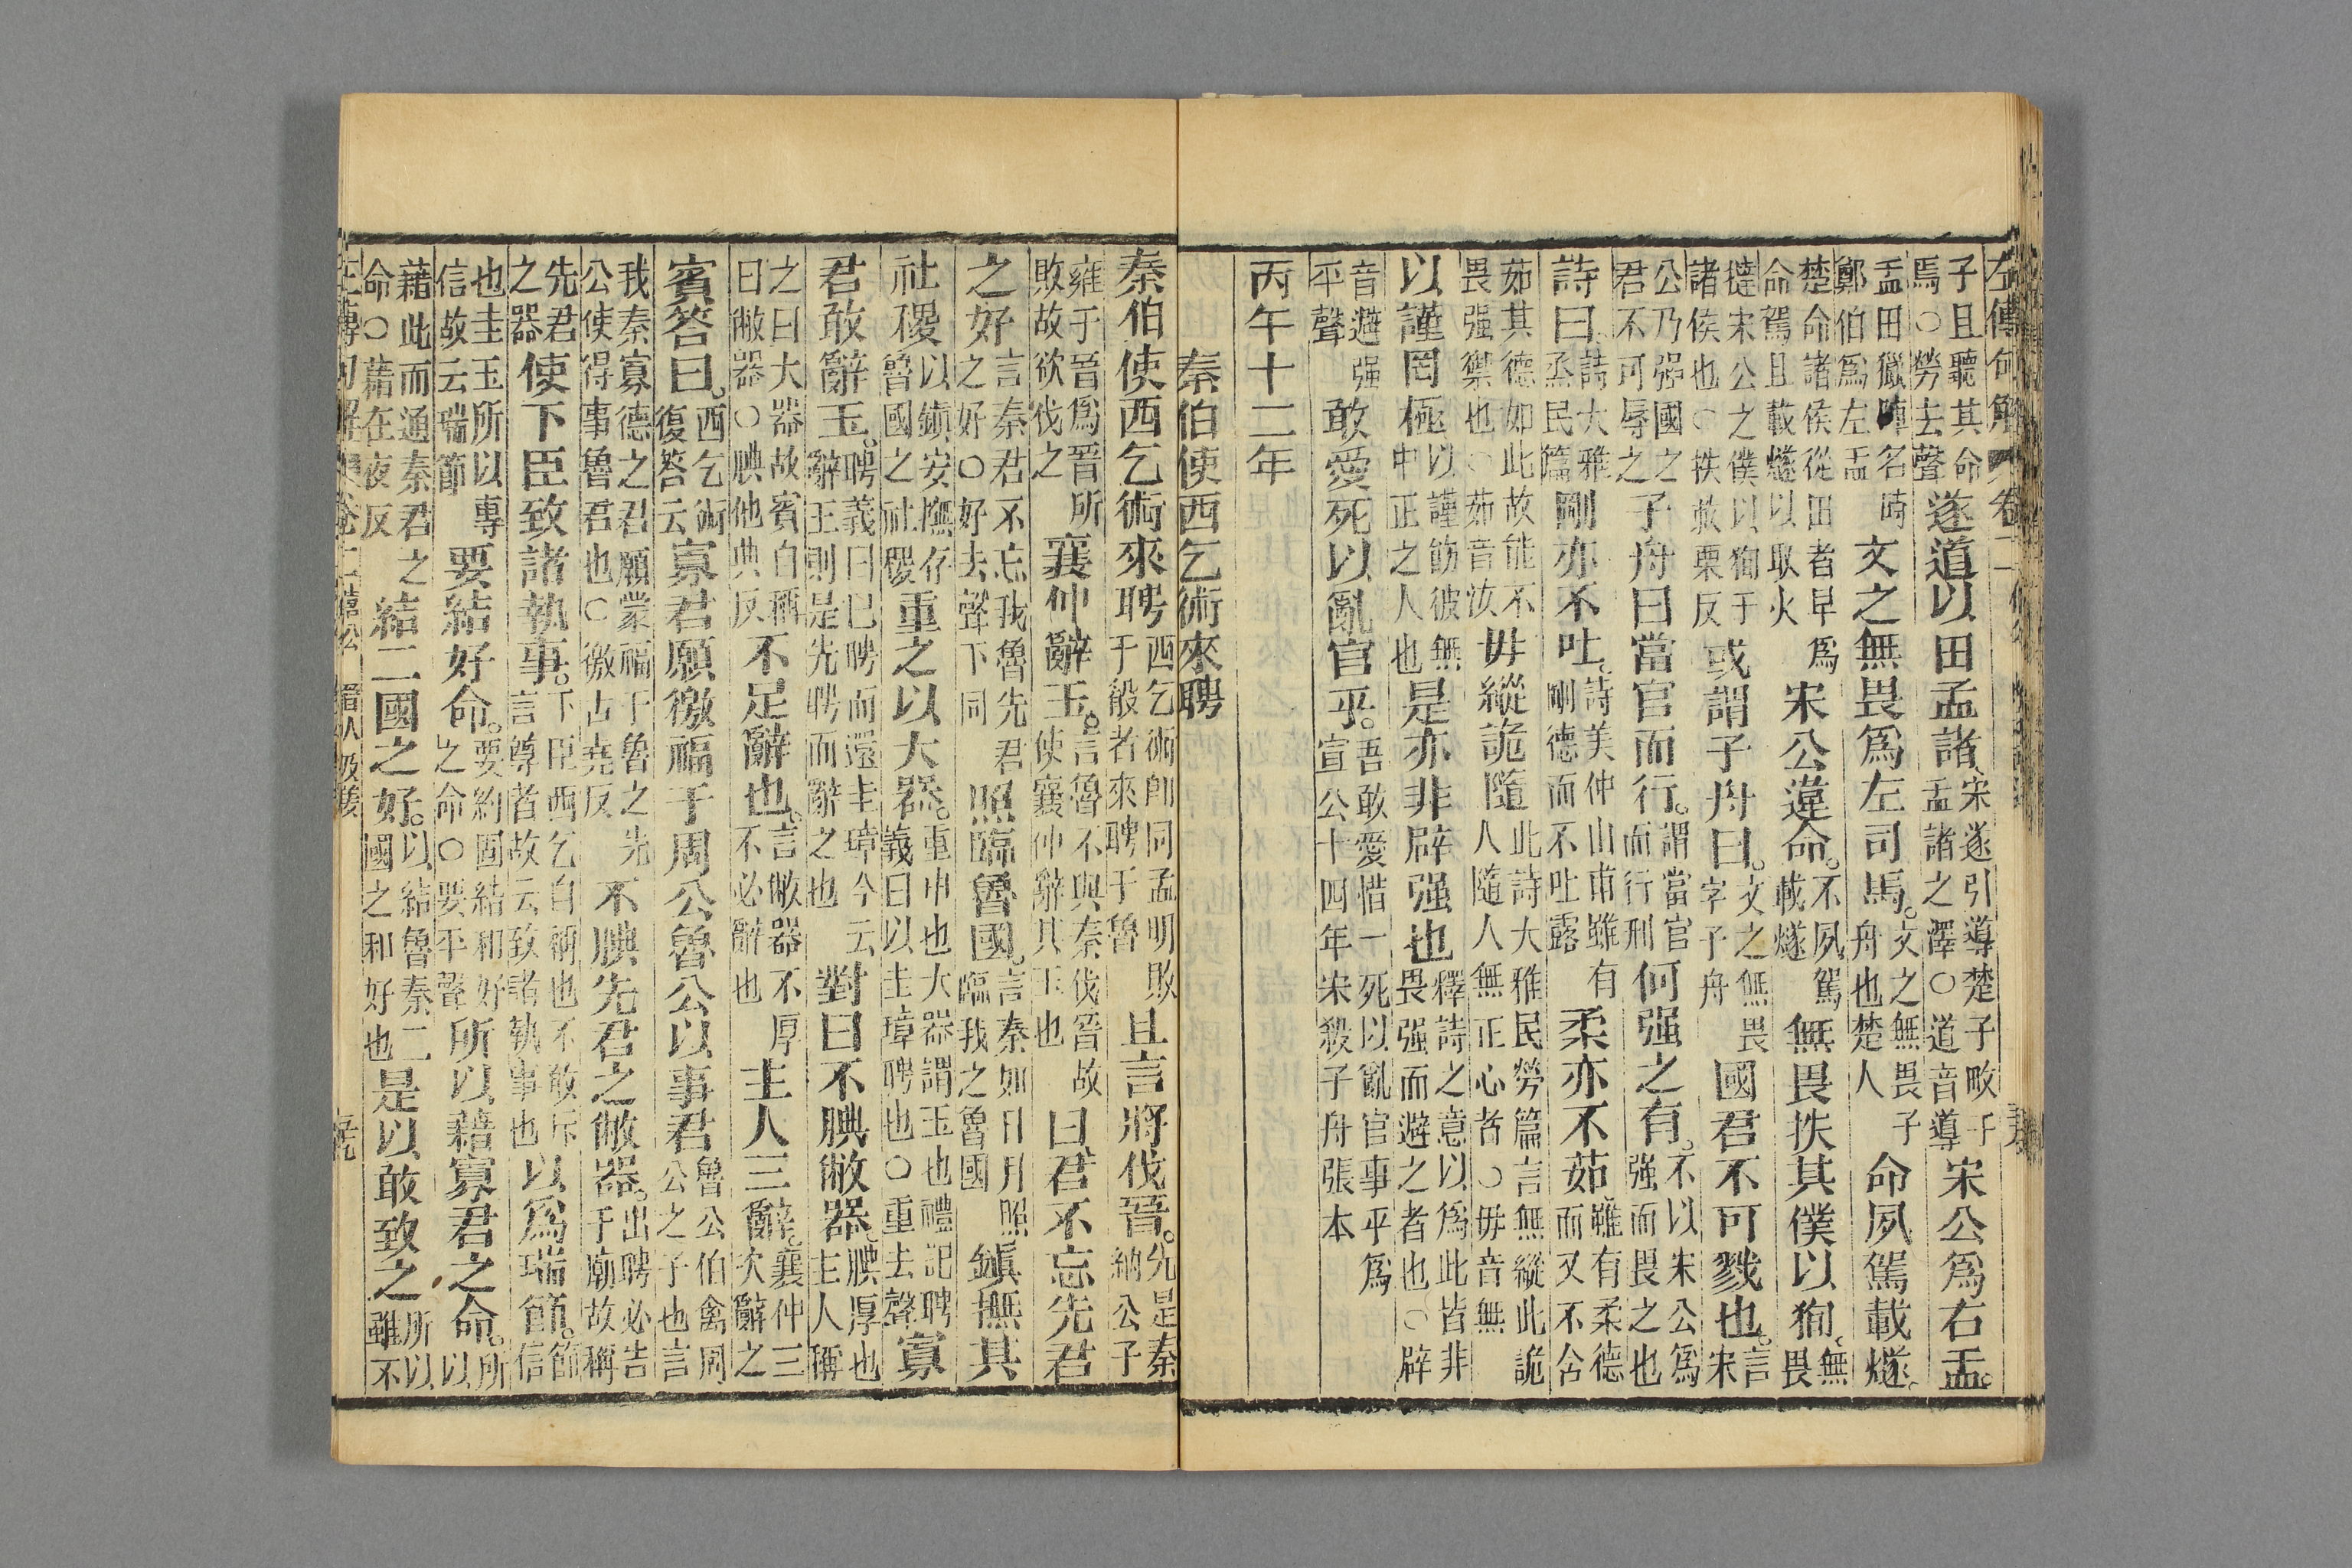 左傳句解卷二
子且聽其命焉○勞去聲遂道以田孟諸宋遂引導楚子畋于孟諸之澤○道音導宋公爲右盂。
盂田獵陣名時鄭伯爲左盂文之無畏爲左司馬。文之無畏子舟也楚人命夙駕載燧。
楚命諸侯從田者早爲命駕且載燧以取火宋公違命。不夙駕載燧無畏抶其僕以狥。無畏
撻宋公之僕以狥于諸侯也○抶敕栗反或謂子舟曰。文之無畏字子舟國君不可戮也。言宋
公乃强國之君不可辱之子舟曰當官而行。謂當官而行刑何强之有。不以宋公爲强而畏之也
詩曰詩大雅烝民篇剛亦不吐。詩美仲山甫雖有剛德而不吐露柔亦不茹雖有柔德而又不含
茹其德如此故能不畏强禦也○茹音汝毋縱詭隨此詩大雅民勞篇言無縱此詭人隨人無正心者○毋音無
以謹罔極以謹飭彼無中正之人也是亦非辟强也釋詩之意以爲此皆非畏强而避之者也○辟
音避强平聲敢愛死以亂官乎。吾敢愛惜一死以亂官事乎爲宣公十四年宋殺子舟張本
丙午十二年
秦伯使西乞術來聘
秦伯使西乞術來聘西乞術卽同孟明敗于殽者來聘于魯且言將伐晉。先是秦納公子
雍于晉爲晉所敗故欲伐之襄仲辭玉。言魯不與秦伐晉故使襄仲辭其玉也曰君不忘先君
之好言秦君不忘我魯先君之好○好去聲下同照臨魯國。言秦如日月照臨我之魯國鎭撫其
社稷以鎮安撫存魯國之社稷重之以大器。重申也大器謂玉也禮記聘義曰以圭璋聘也○重去聲寡
君敢辭玉。聘義曰已聘而還圭璋今云辭玉則是先聘而辭之也對曰不腆敝器。腆厚也主人稱
之曰大器故賓自稱曰敝器○腆他典反不足辭也。言敝器不厚不必辭也主人三辭。襄仲三次辭之
賓答曰。西乞術復答云寡君願徼福于周公魯公以事君魯公伯禽周公之子也言
我秦寡德之君願蒙福于魯之先公使得事魯君也○徼古堯反不腆先君之敝器。出聘必告于廟故稱
先君之器使下臣致諸執事。下臣西乞自稱也不敢斥言尊者故云致諸執事也以爲瑞節。節信
也圭玉所以專信故云瑞節要結好命。要約固結和好之命○要平聲所以藉寡君之命。所以
藉此而通秦君之命○藉在夜反結二國之好。以結魯秦二國之和好也是以敢致之所以雖不